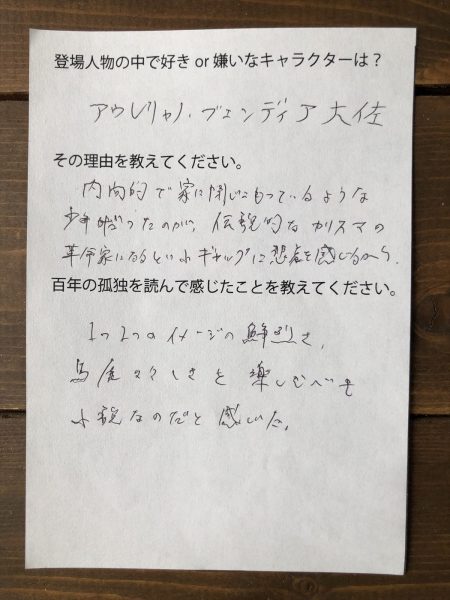 登場人物の中で好き or 嫌いなキャラクターは？
アウレリャノ・ブエンディア大佐
その理由を教えてください。
内向的で家に閉じこもっているような
少年だったのが、伝説的なカリスマの
革命家になるというギャップに悲哀を感じるから。
百年の孤独を読んで感じたことを教えてください。
1つ1つのイメージの鮮烈さ、
馬鹿々々しさを楽しむべき
小説なのだと感じた。